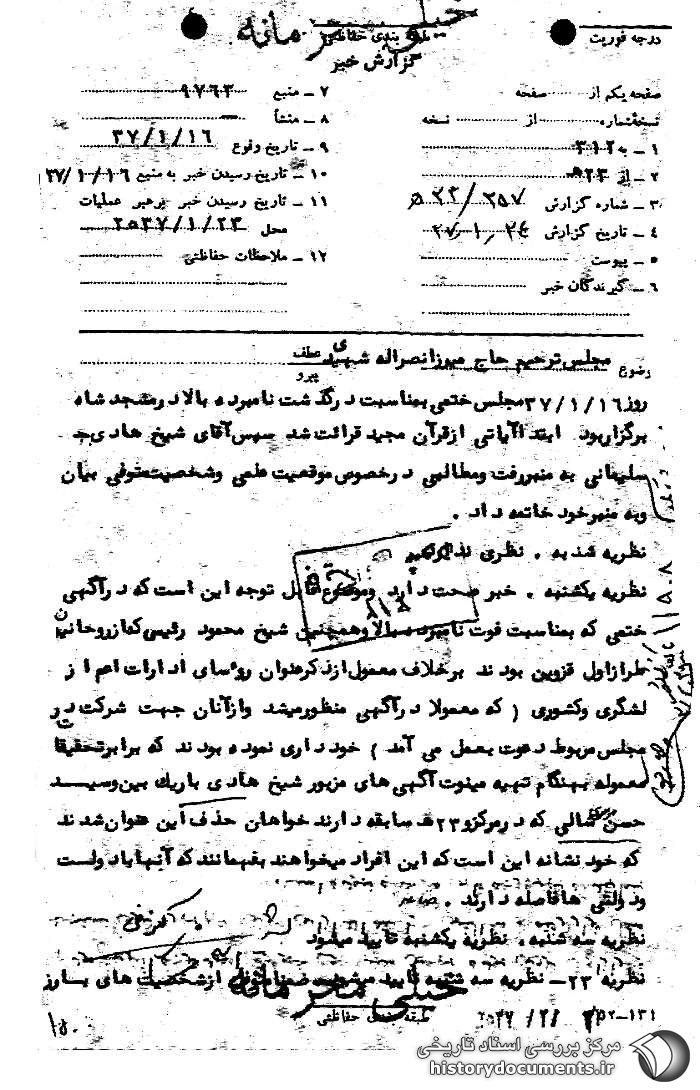 خیلی محرمانه
درجه فوریت
طبقه بندی حفاظتی
گزارش خبر
صفحه یکم از صفحه
نسخه شماره از نسخه
۱ ـ به ۳۱۲
۲ ـ از ۲۳ ه‍
۳ ـ شماره گزارش ۲۵۷ / ۲۲ ه‍
۴ ـ تاریخ گزارش ۲۴ / ۱ / ۳۷
۵ ـ پیوست
۶ ـ گیرندگان خبر
۷ ـ منبع ۹۷۶۳
۸ ـ منشأ
۹ ـ تاریخ وقوع ۳۷/۱/۱۶
۱۰ ـ تاریخ رسیدن خبر به منبع ۳۷/۱/۱۶
۱۱ ـ تاریخ رسیدن خبر برهبر عملیات
محل ۲۵۳۷/۱/۲۳
۱۲ ـ ملاحظات حفاظتی
موضوع مجلس ترحیم حاج میرزا نصراله شهیدی
عطف
پیرو
روز ۳۷/۱/۱۶ مجلس ختمی بمناسبت درگذشت نامبرده بالا در مسجد شاه
برگزار بود ابتدا آیاتی از قرآن مجید قرائت شد سپس آقای شیخ هادی
سلیمانی به منبر رفت و مطالبی در خصوص موقعیت علمی و شخصیت متوفی بیان
و به منبر خود خاتمه داد .
نظریه شنبه . نظری ندارد
نظریه یکشنبه . خبر صحت دارد و موضوع قابل توجه این است که در آگهی
ختمی که بمناسبت فوت نامبرده بالا و همچنین شیخ محمود رئیسی که از روحانیون
طراز اول قزوین بودند برخلاف معمول از ذکر عنوان روسای ادارات اعم از
لشگری و کشوری ( که معمولا در آگهی منظور میشد و از آنان جهت شرکت در
مجلس مربوط دعوت بعمل می آمد ) خودداری نموده بودند که برابر تحقیقات
معموله بهنگام تهیه مینوت آگهی های مزبور شیخ هادی باریک بین و سید
حسن موسوی شالی که در مرکز و ۲۳ ه‍ سابقه دارند خواهان حذف این عنوان شدند
که خود نشانه این است که این افراد میخواهند بفهمانند که آنها با دولت
و دولتی ها فاصله دارند .
نظریه سه شنبه . نظریه یکشنبه تایید میشود
نظریه ۲۳ ـ نظریه سه شنبه تایید میشود ضمنا متوفی از شخصیت های بارز
خیلی محرمانه
طبقه بندی حفاظتی
۱۳۱-۴۵۲
۱۵۰
مرکز بررسی اسناد تاریخی
historydocuments.ir